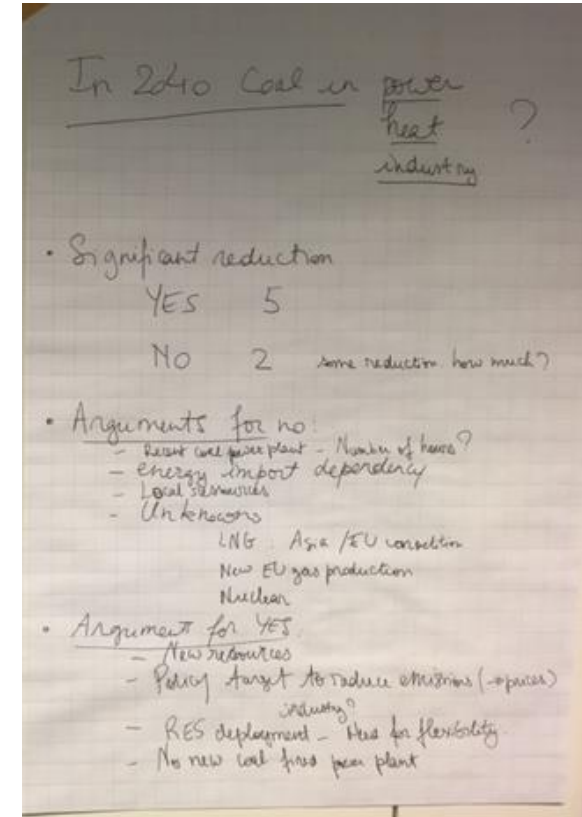 In 2040 Coal in power
heat ?
industry
• Significant reduction
YES 5
NO 2 some reduction how much?
• Arguments for no:
- Recent coal power plant - Number of hours?
- energy import dependency
- Local resources
- Unknowns
LNG : Asia / EU
New EU gas production
Nuclear
• Argument for YES
- New resources
- Policy target to reduce emissions (→ prices)
industry?
- RES deployment - Need for flexibility
- No new coal fired power plant